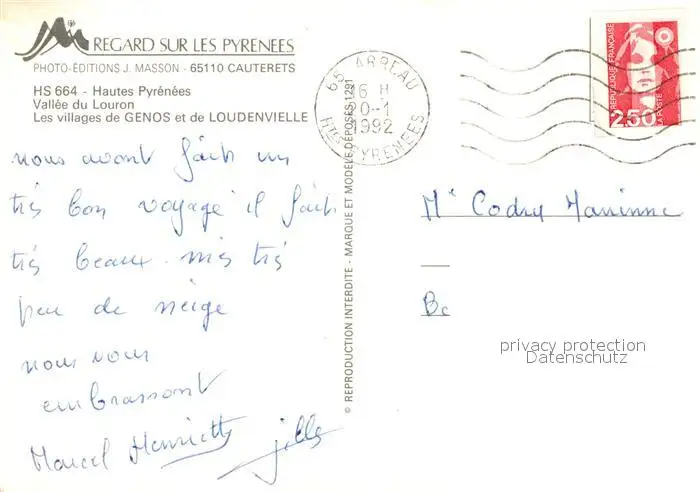 REGARD SUR LES PYRENEES
PHOTO-ÉDITIONS J. MASSON - 65110 CAUTERETS
HS 664 - Hautes Pyrénées
Vallée du Louron
Les villages de GENOS et de LOUDENVIELLE
nous avont fait un
très bon voyage il fait
très beaux. mis très
peu de neige
nous vous
embrassont
Marcel Henriette Jills
© REPRODUCTION INTERDITE - MARQUE ET MODELE DÉPOSÉS 1291
65 ARREAU
16 H
1992
Htes PYRENEES
REPUBLIQUE FRANÇAISE
LA POSTE
2,50
Me Codry Marinne
Bc
privacy protection
Datenschutz